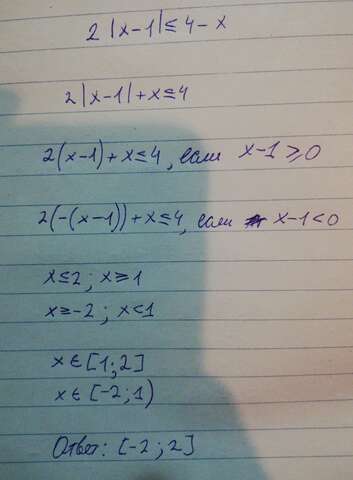 2|x-1|≤4-x
2|x-1|+x≤4
2(x-1)+x≤4, если x-1≥0
2(-(x-1))+x≤4, если x-1<0
x≤2; x≥1
x≥-2; x<1
x∈[1;2]
x∈[-2;1)
Ответ: [-2;2]